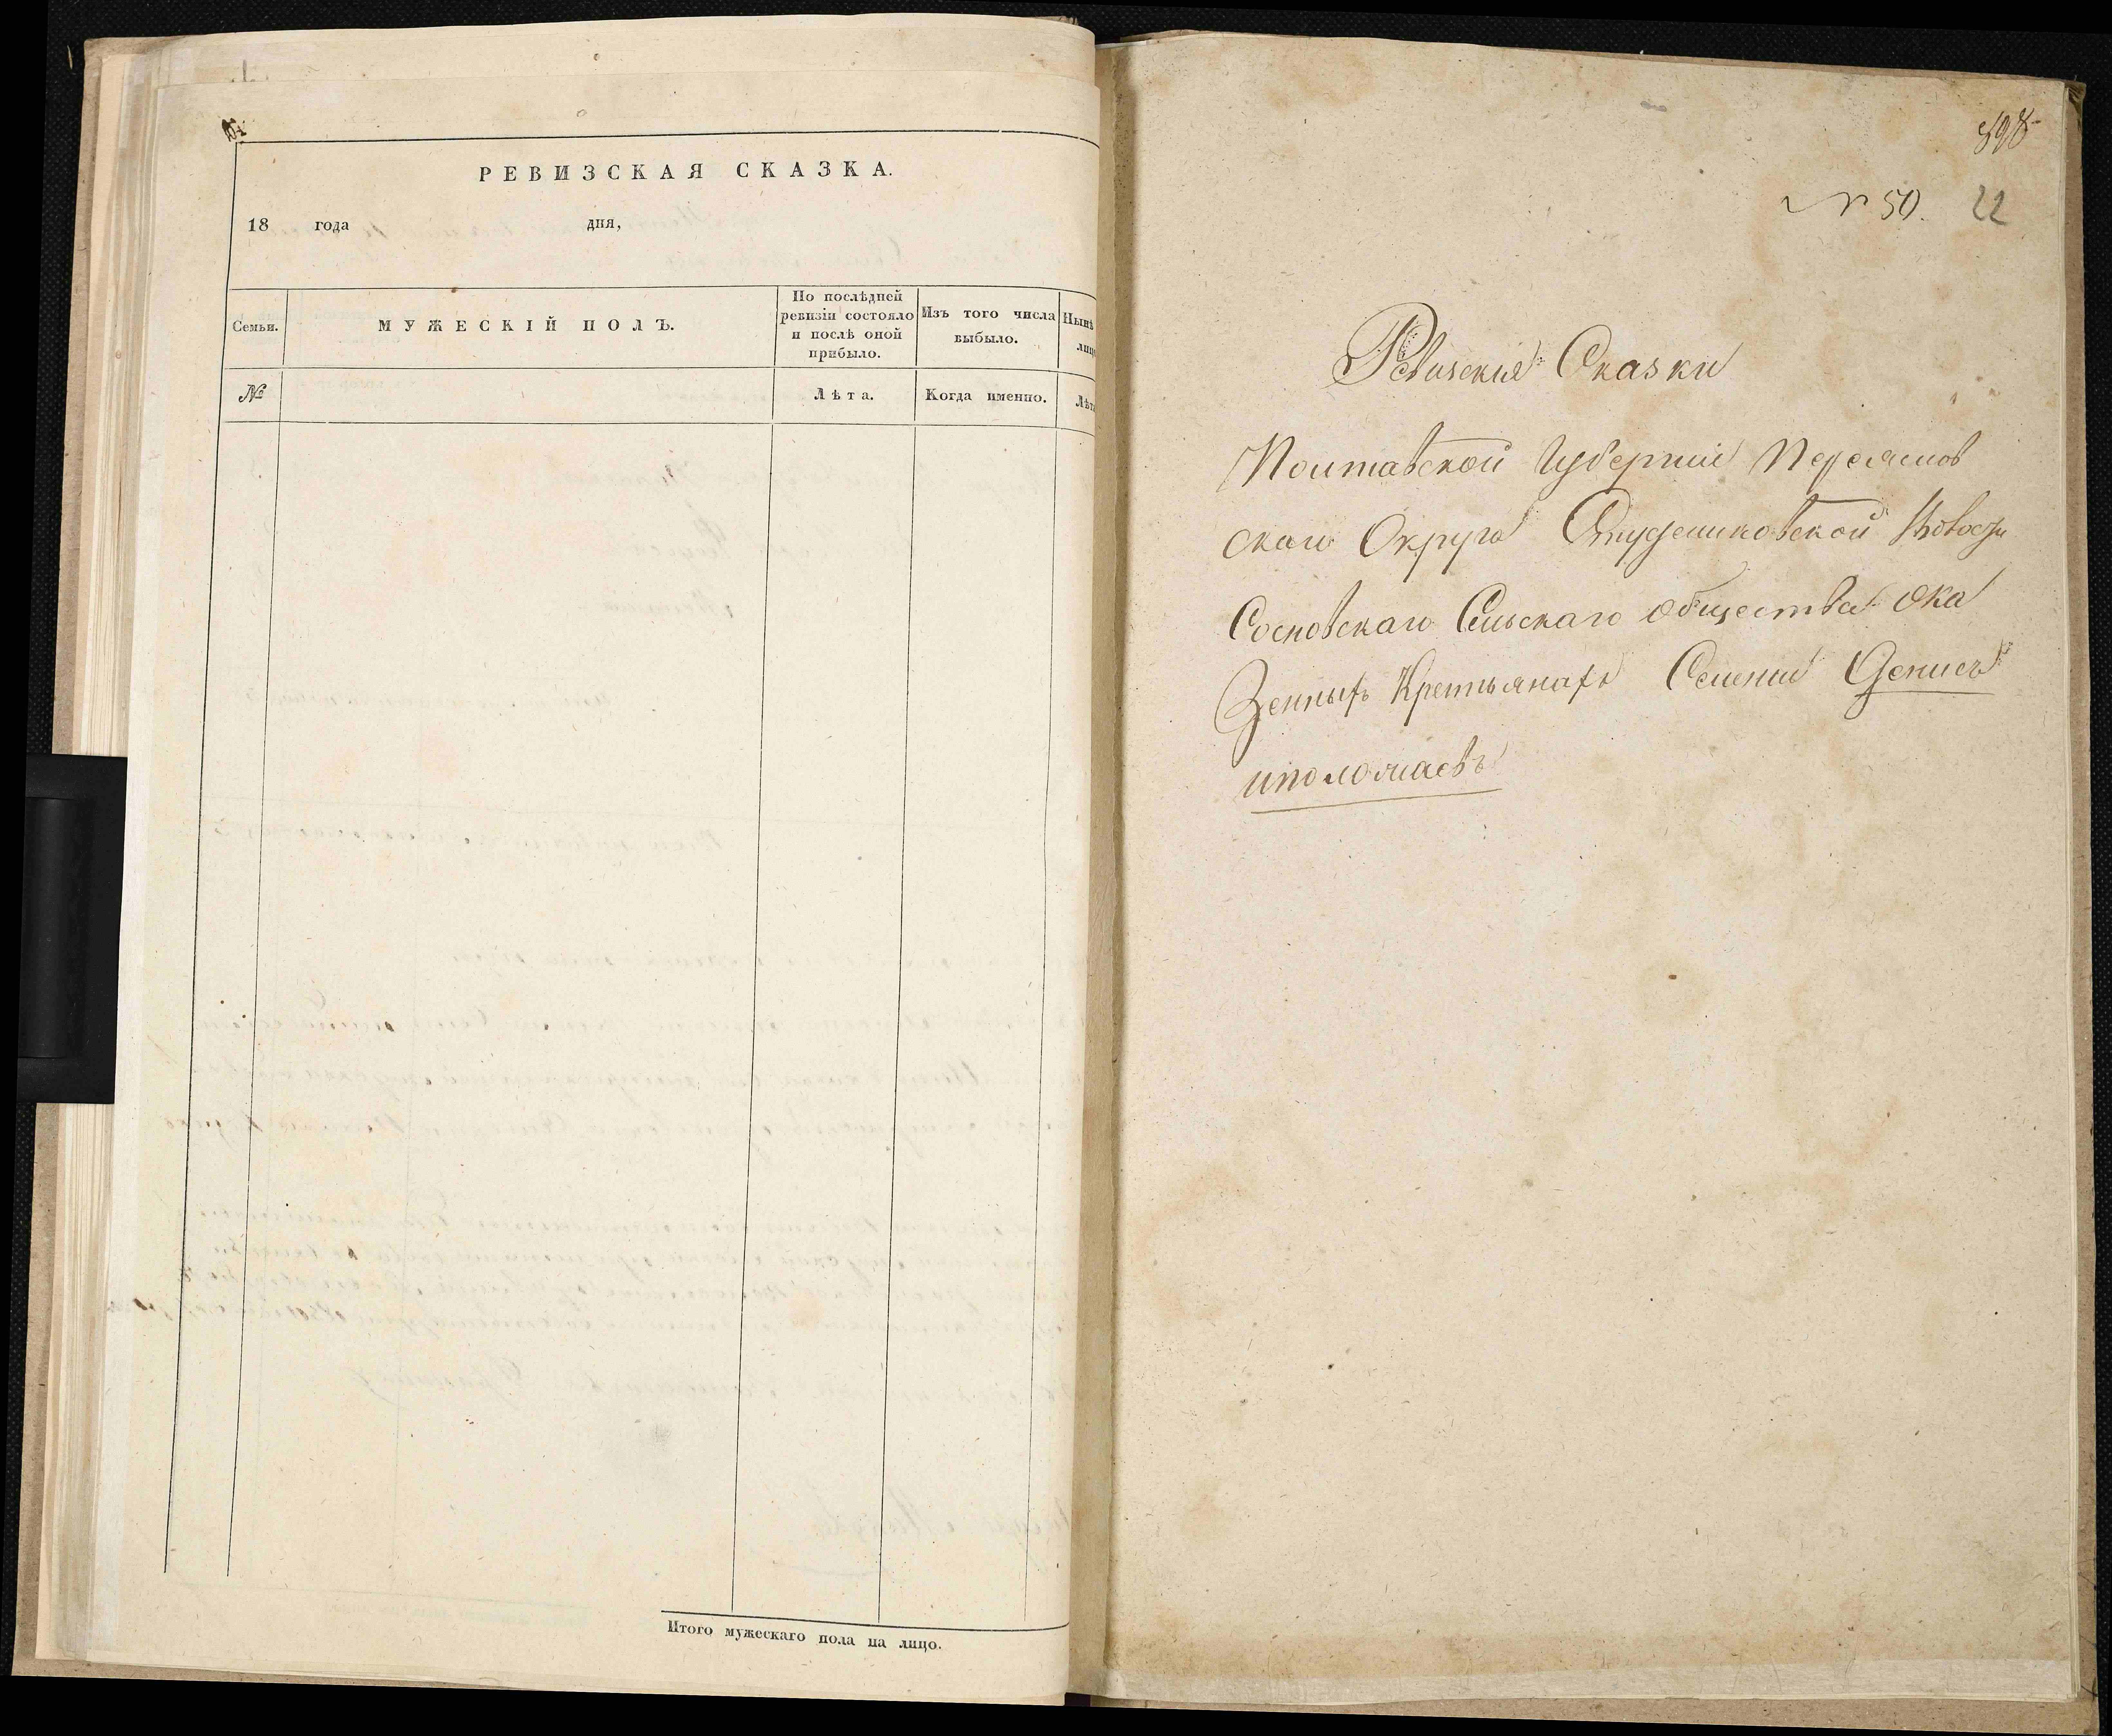 РЕВИЗСКАЯ СКАЗКА.
18 года дня,
Семьи.
МУЖЕСКІЙ ПОЛЪ.
По послѣдней
ревизіи состояло
и послѣ оной
прибыло.
Изъ того числа
выбыло.
Нынѣ
№
Лѣта.
Когда именно.
Лѣта
Итого мужескаго пола на лицо.
№ 50. 22
Ревизскія Сказки
Полтавской Губерніи Переяслов
скаго Округа Студениковской
Сосновскаго Сельскаго общества о ка
зенныхъ Крестьянахъ Селеній Денисъ